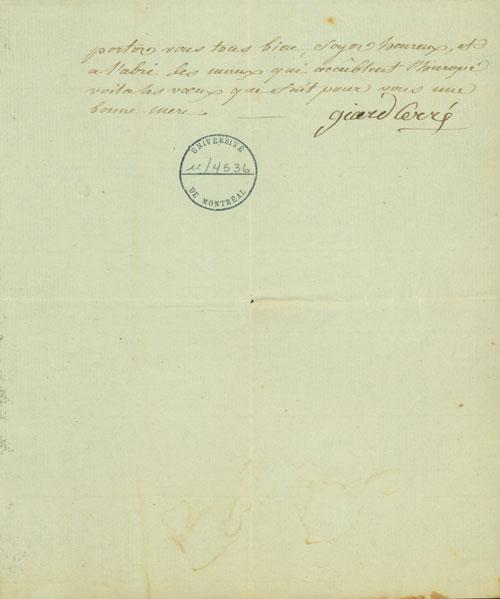 portés vous tous bien, Soyés heureux, et
a l'abri des maux qui accablent l'hurope
voila les vœux que fait pour vous une
bonne mere
giard Cerré
UNIVERSITÉ
u/4536
DE MONTRÉAL